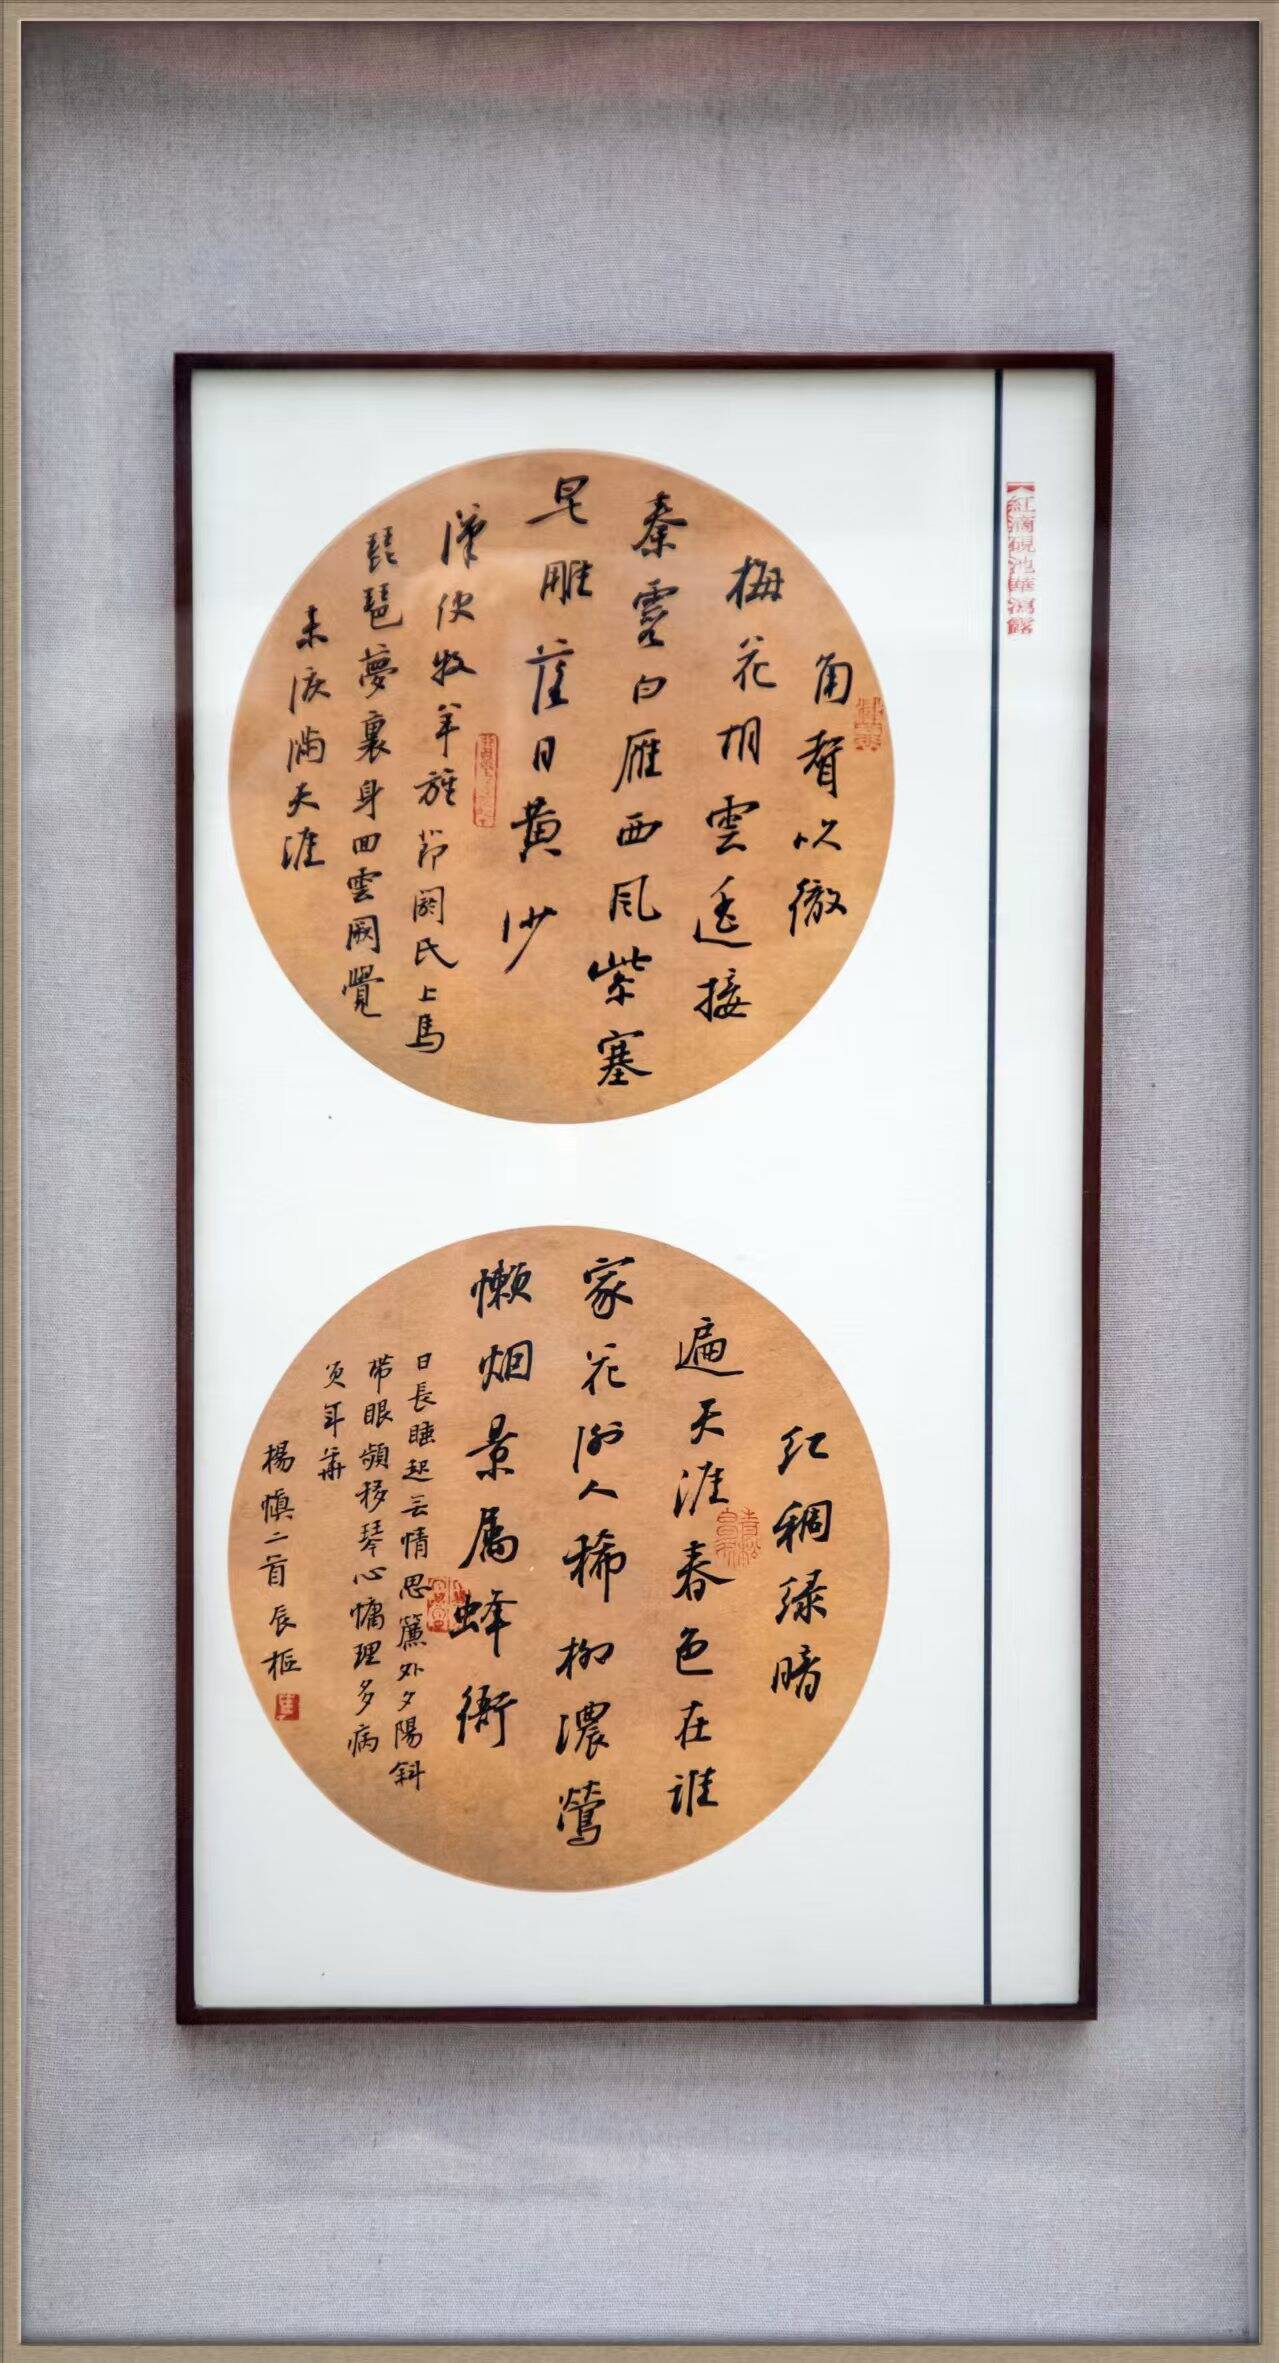 角聲吹徹
梅花胡雲遥接
秦霞白雁西風紫塞
皂雕落日黄沙
漢使牧羊旌節閼氏上馬
琵琶夢裏身回雲闕覺
来淚滿天涯
红稠绿暗
遍天涯春色在谁
家花谢人稀柳濃鶯
懒烟景属蜂衙
日長睡起無情思簾外夕陽斜
带眼頻移琴心慵理多病
负年華
楊慎二首辰樞